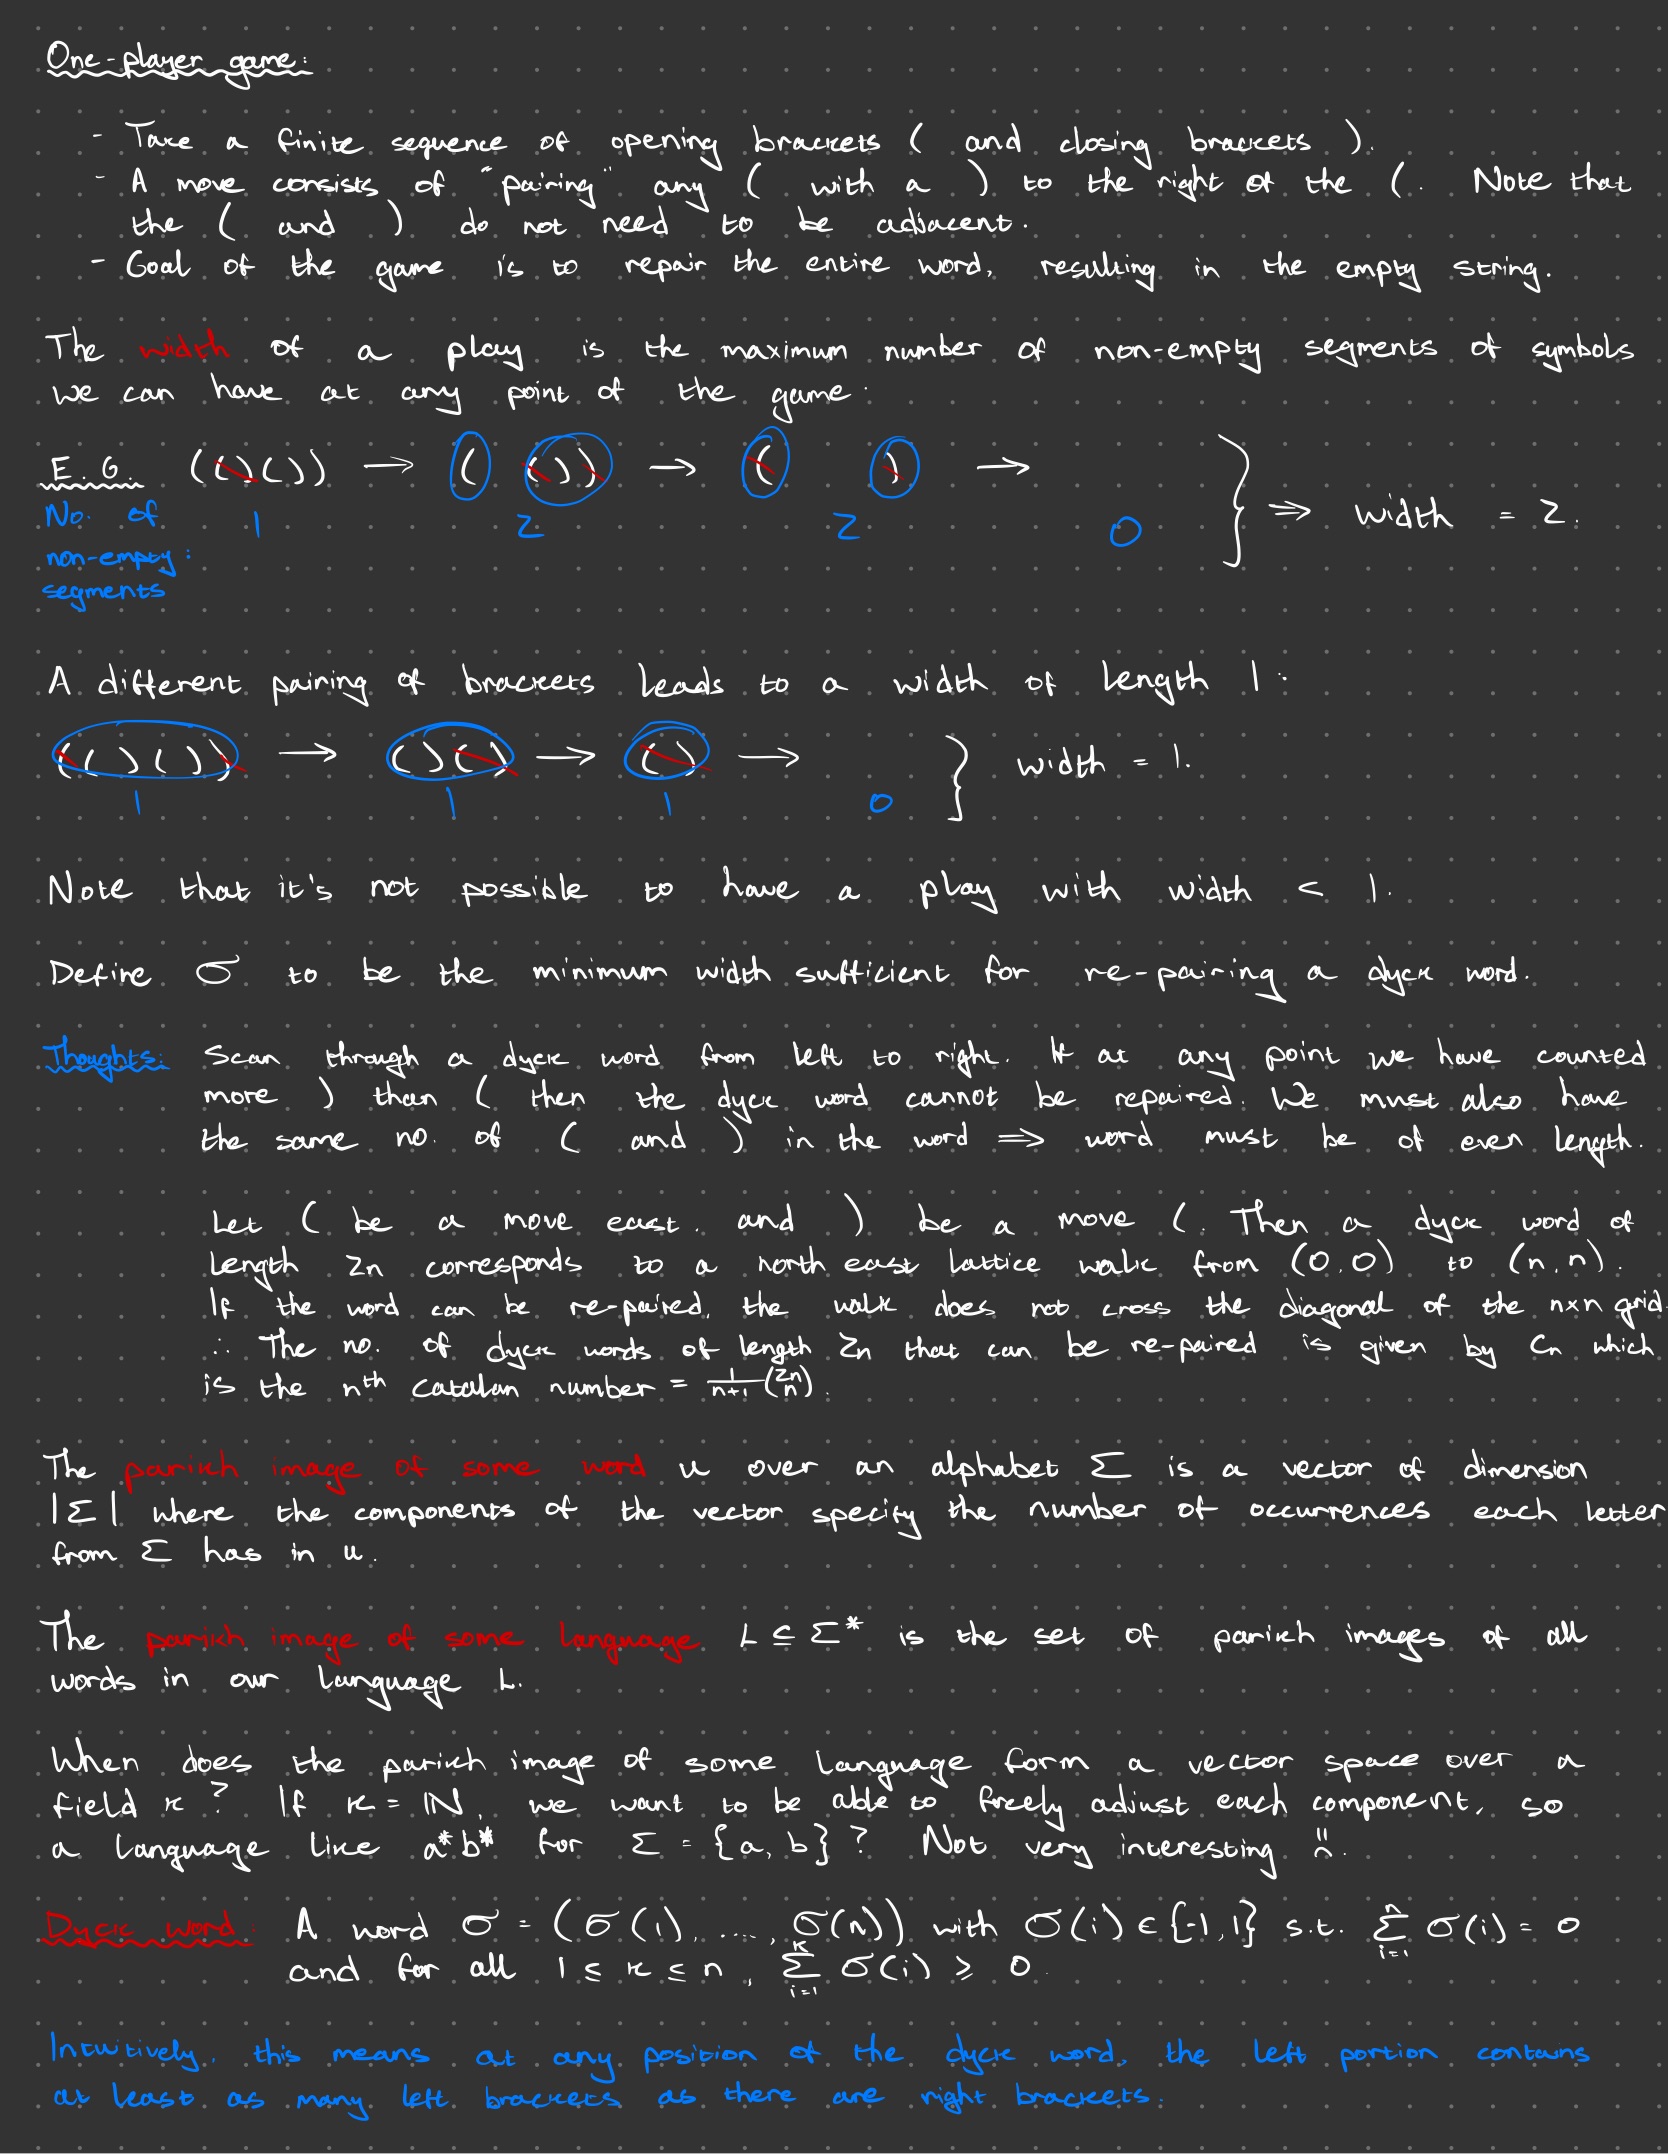 One-player game:
- Take a finite sequence of opening brackets ( and closing brackets ).
- A move consists of "pairing" any ( with a ) to the right of the (. Note that
the ( and ) do not need to be adjacent.
- Goal of the game is to repair the entire word, resulting in the empty string.
The width of a play is the maximum number of non-empty segments of symbols
we can have at any point of the game.
E.G. (()()) → ( ()) → ( ) → } ⇒ width = 2.
No. of 1 2 2 0
non-empty:
segments
A different pairing of brackets leads to a width of length 1:
(()()) → ()() → () → } width = 1.
1 1 1 0
Note that it's not possible to have a play with width < 1.
Define σ to be the minimum width sufficient for re-pairing a dyck word.
Thoughts: Scan through a dyck word from left to right. If at any point we have counted
more ) than ( then the dyck word cannot be repaired. We must also have
the same no. of ( and ) in the word ⇒ word must be of even length.
Let ( be a move east. and ) be a move (. Then a dyck word of
length 2n corresponds to a north east lattice walk from (0,0) to (n,n).
If the word can be re-paired, the walk does not cross the diagonal of the n×n grid.
∴ The no. of dyck words of length 2n that can be re-paired is given by Cn which
is the nth catalan number = 1/(n+1) (2n n).
The parikh image of some word u over an alphabet Σ is a vector of dimension
|Σ| where the components of the vector specify the number of occurrences each letter
from Σ has in u.
The parikh image of some language L ⊆ Σ* is the set of parikh images of all
words in our language L.
When does the parikh image of some language form a vector space over a
field K? If K = ℕ, we want to be able to freely adjust each component, so
a language like a*b* for Σ = {a, b}? Not very interesting :(.
Dyck word: A word σ = (σ(1), ...., σ(n)) with σ(i) ∈ {-1,1} s.t. Σ_{i=1}^{n} σ(i) = 0
and for all 1 ≤ K ≤ n, Σ_{i=1}^{K} σ(i) ≥ 0.
Intuitively, this means at any position of the dyck word, the left portion contains
at least as many left brackets as there are right brackets.